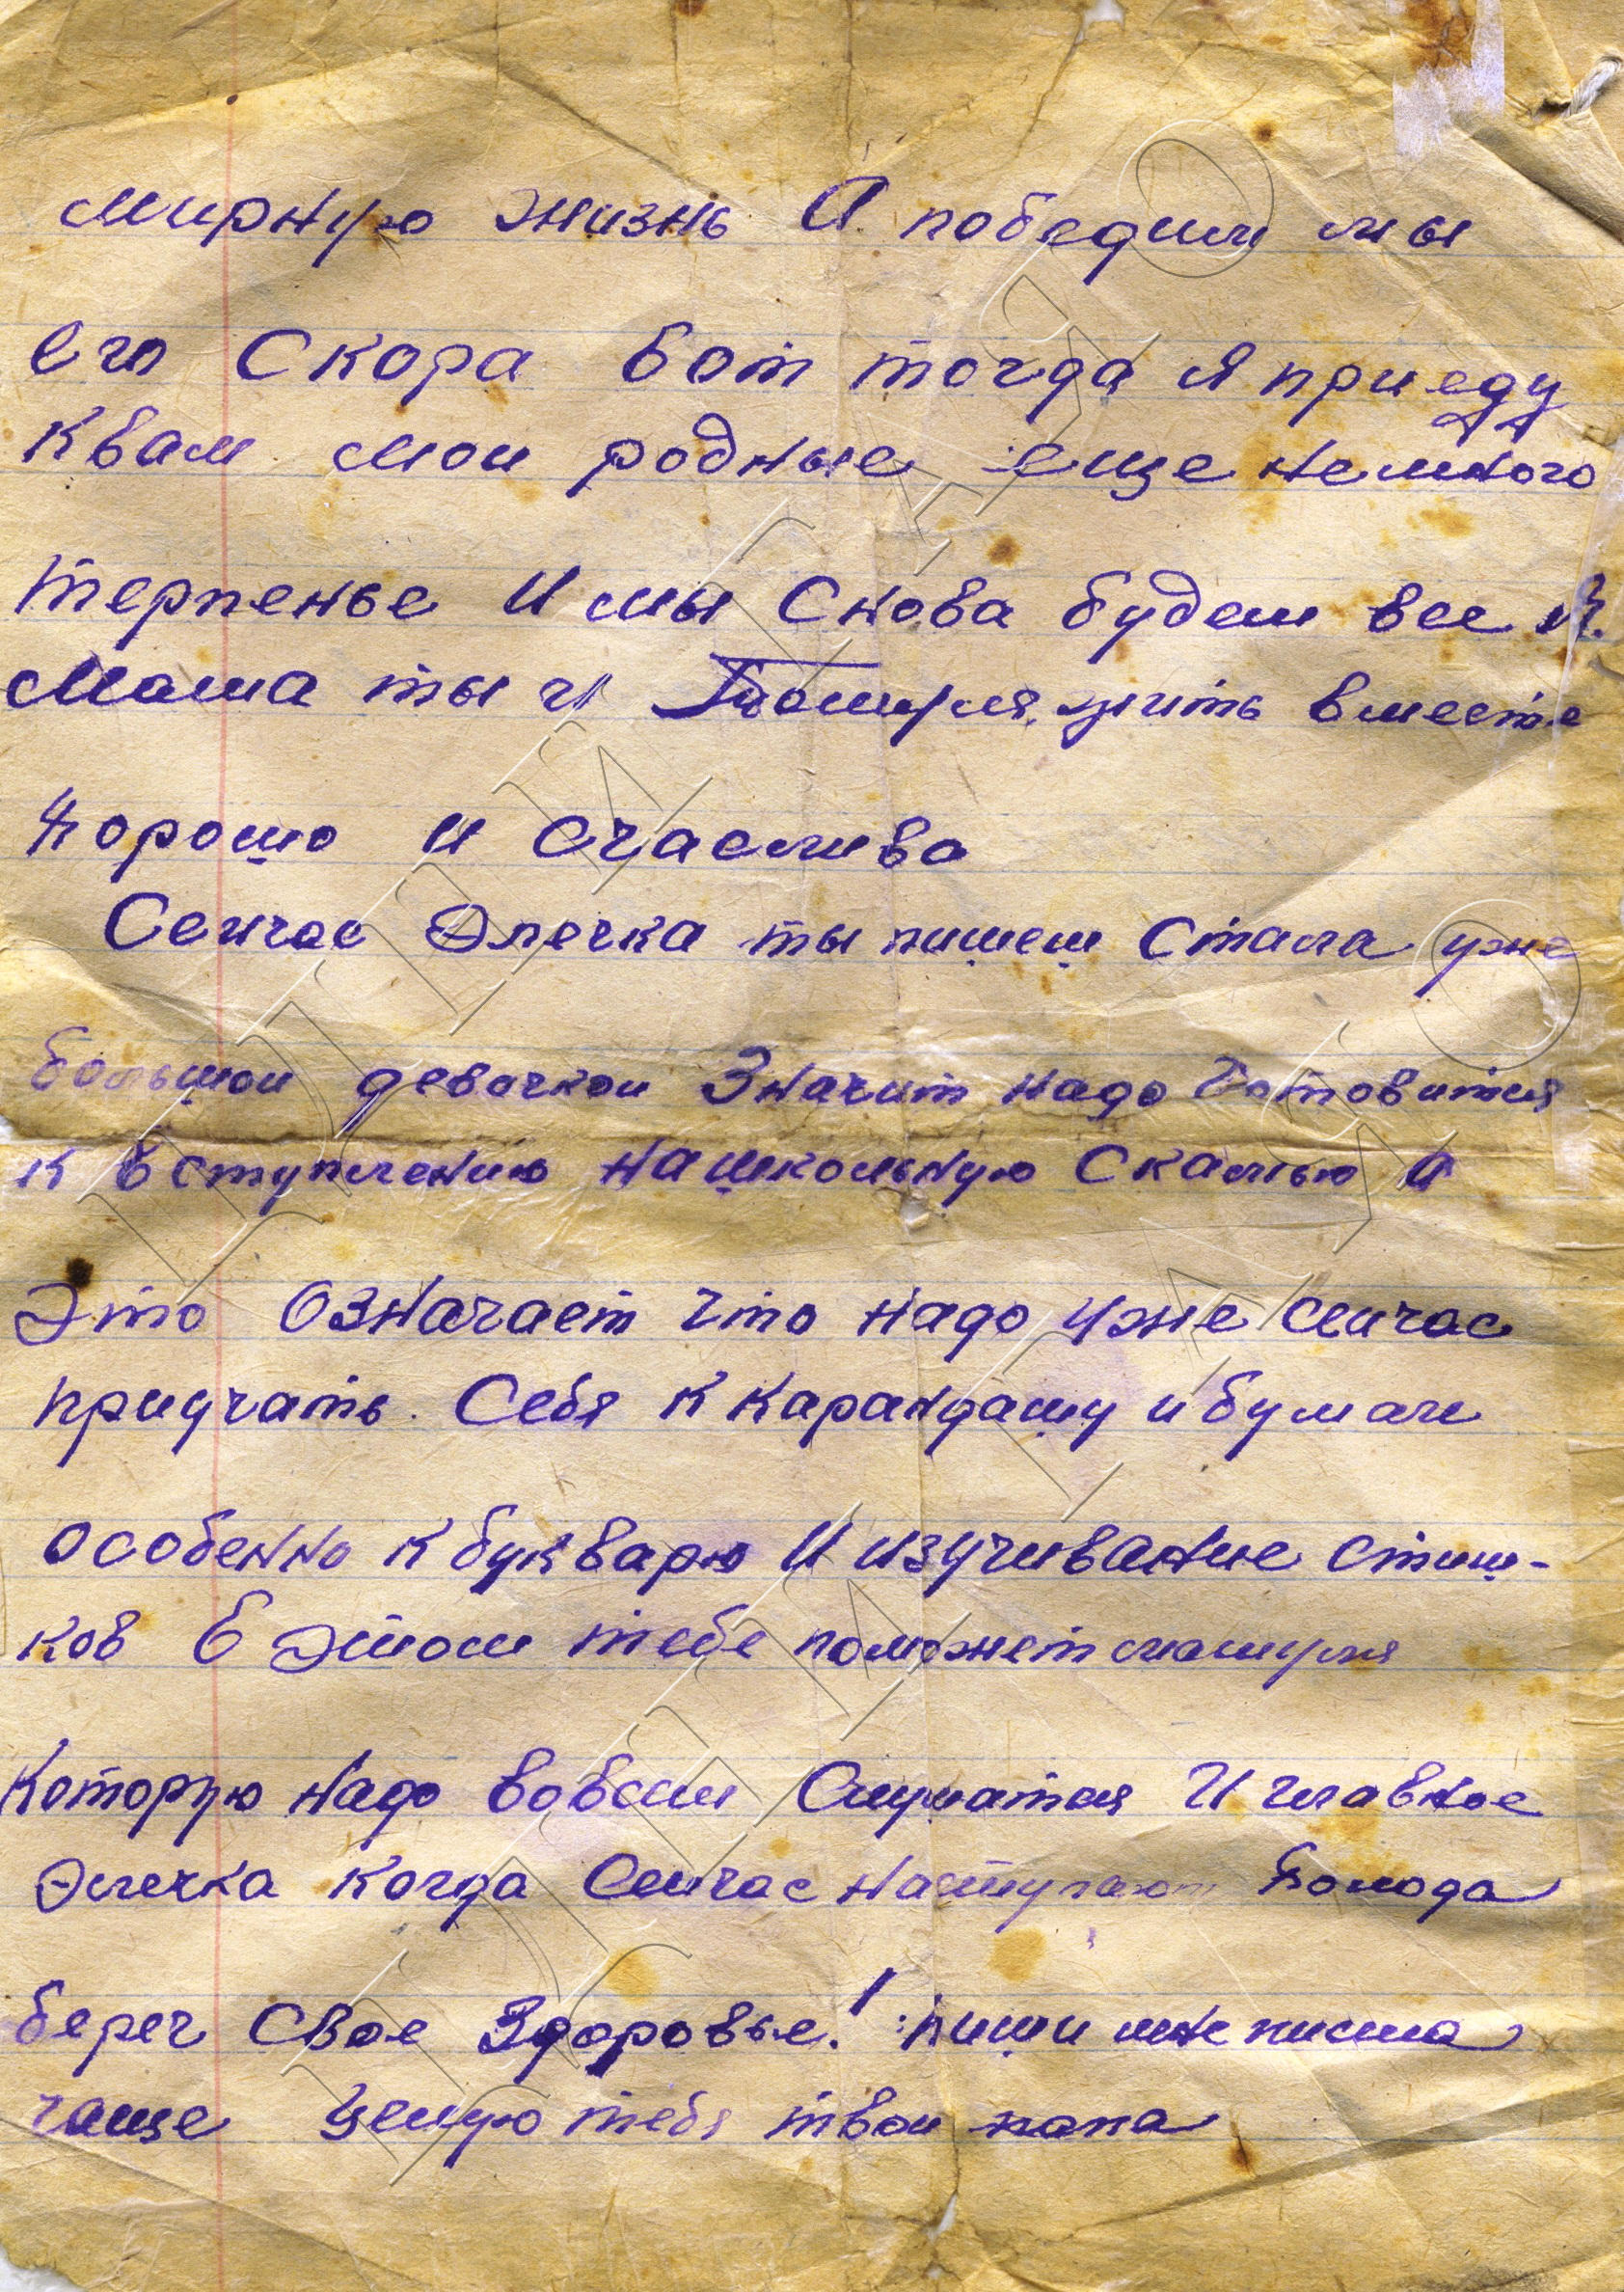 мирную жизнь А победим мы
его Скора вот тогда я приеду
к вам мои родные еще немного
терпенье И мы Снова будем все Я.
Мама ты и жить вместе
Хорошо и счасливо
Сеичас Элечка ты пишеш Стала уже
большои девочкои Значит надо Готовится
к вступлению на школьную Скамью и
Это Означает Что надо уже сеичас
приучать Себя к карандашу и бумаги
особенно к букварю И изучивание стиш-
ков В этом тебе поможет мамуля
Которую надо во всем Слушатся И главное
Элечка когда Сеичас наступают Холода
берег Свое Здоровье! пиши мне писма
чаще Целую тебя твои папа
ЦДНИ